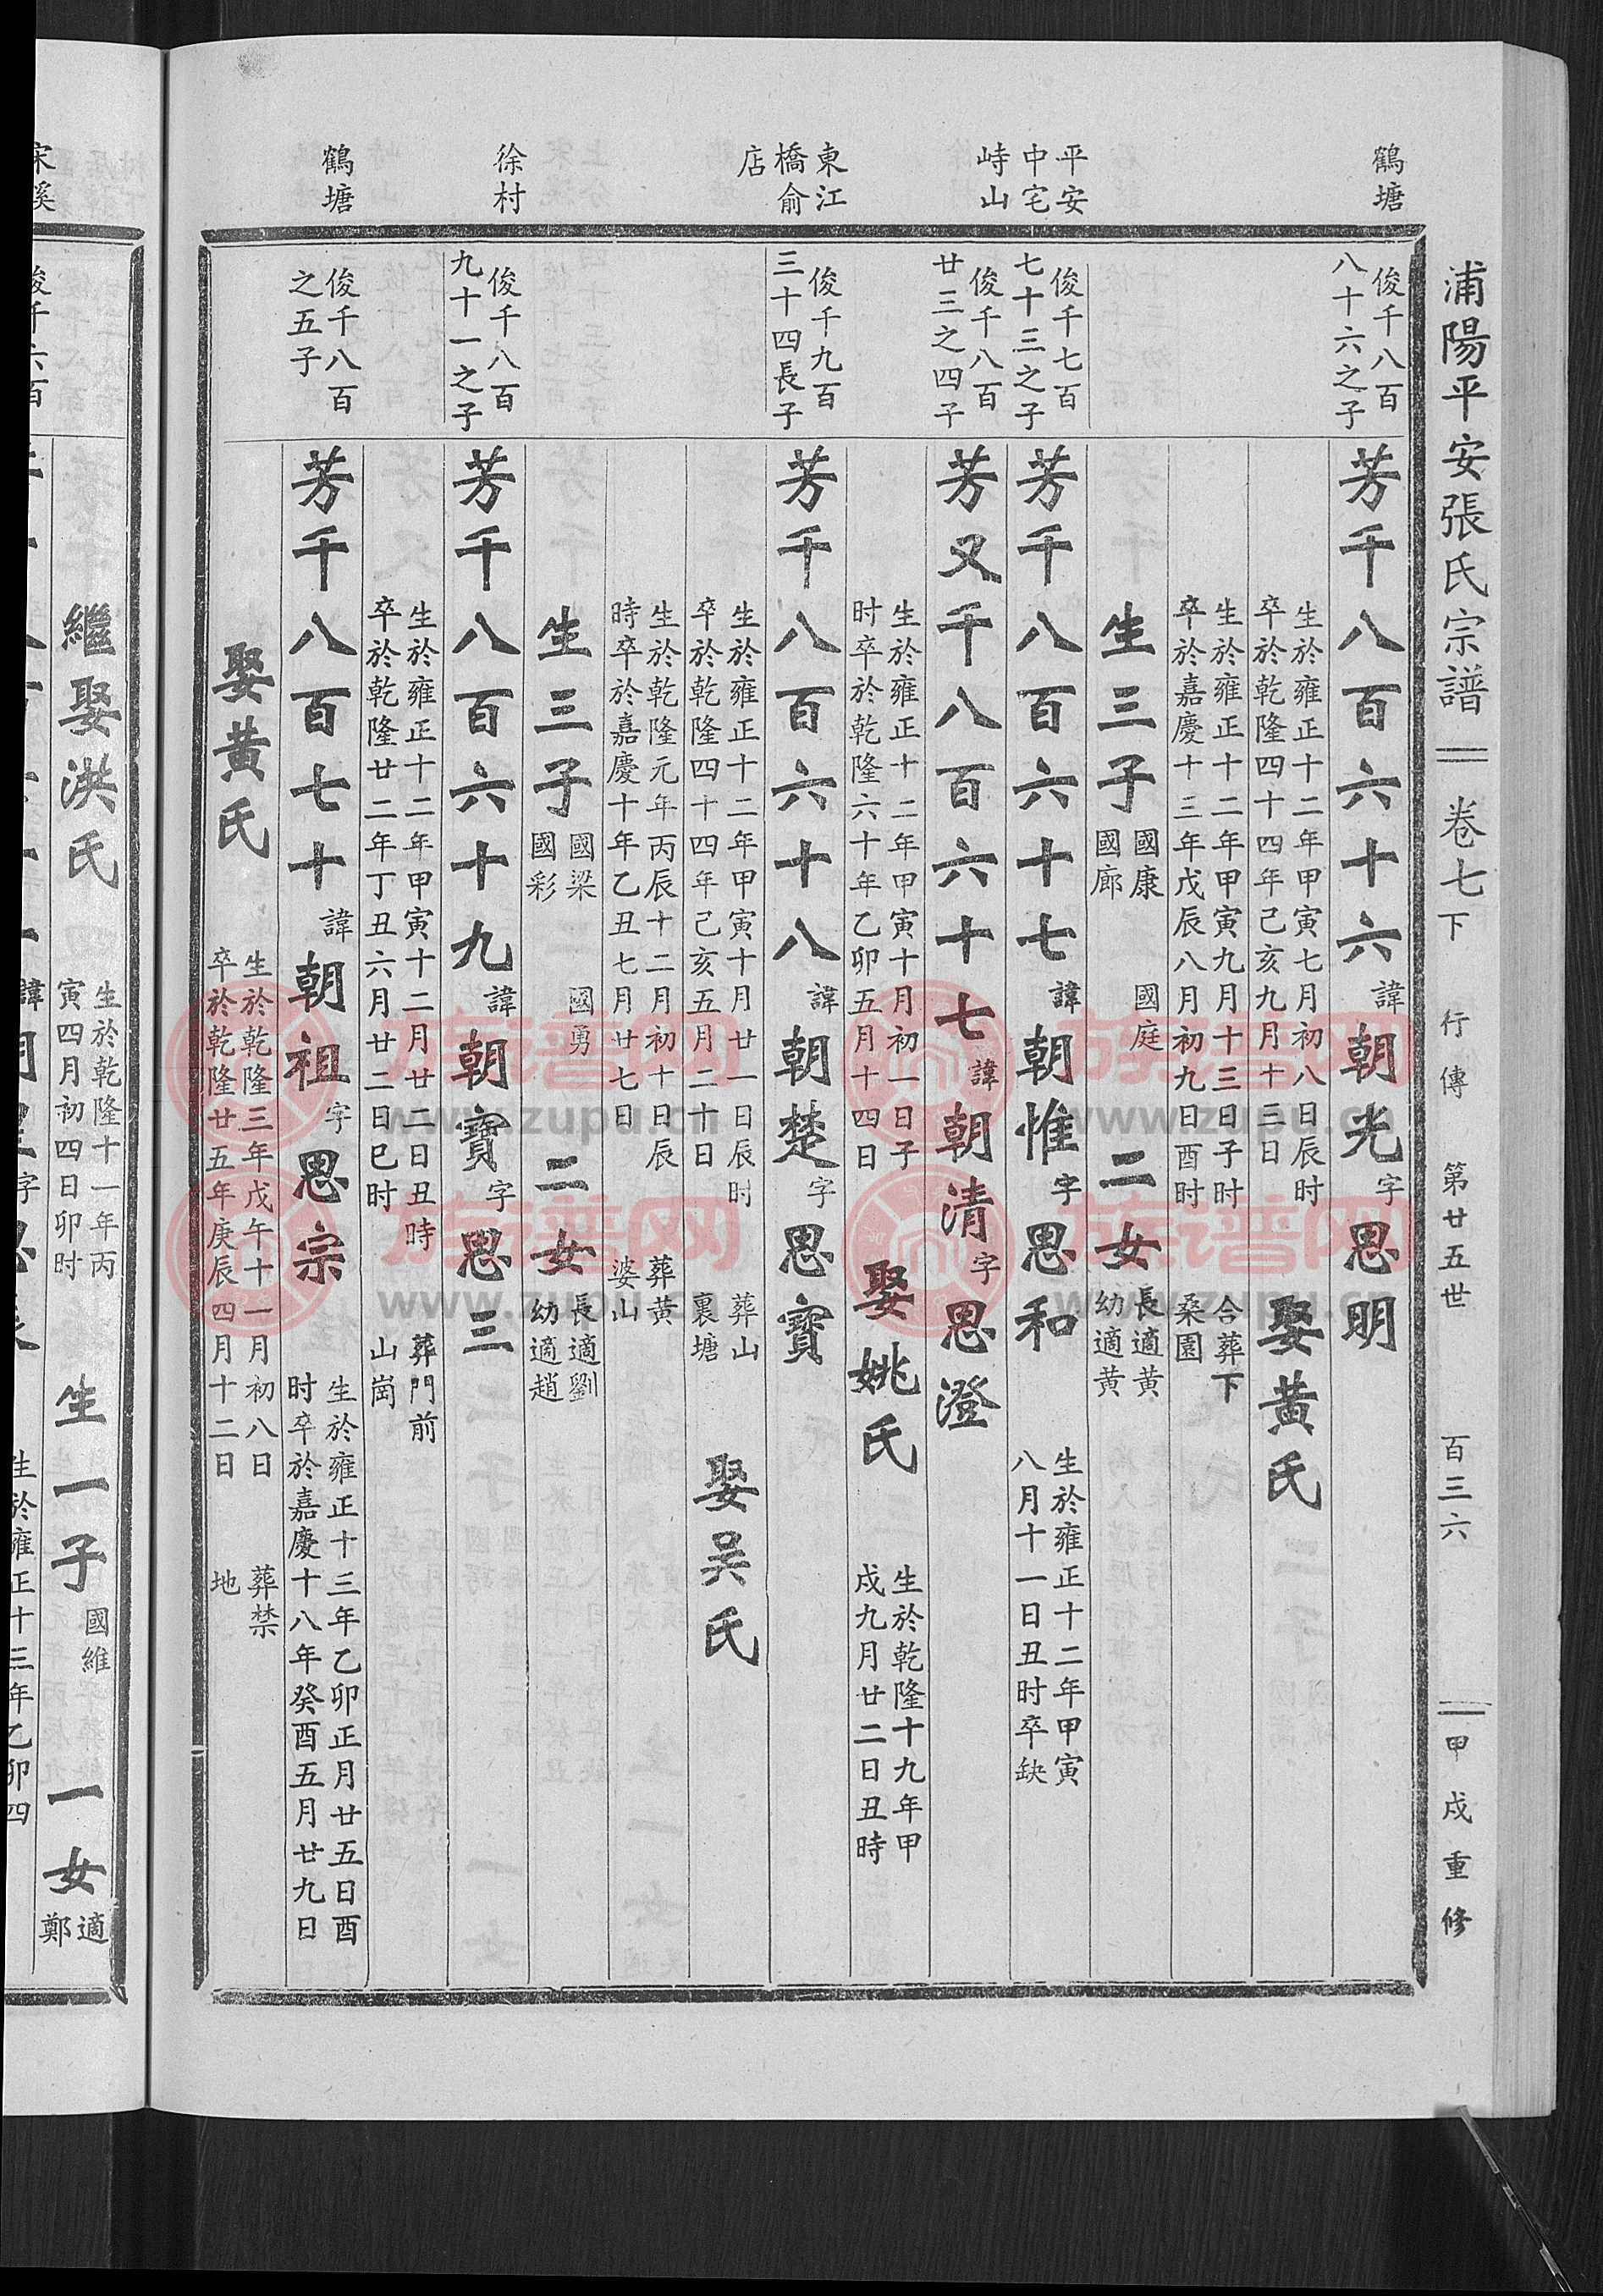 浦陽平安張氏宗譜 卷七下 行傳 第廿五世 百三六 甲戌重修
鶴塘
俊千八百
八十六之子
芳千八百六十六 諱 朝光 字 思明
生於雍正十二年甲寅七月初八日辰时
卒於乾隆四十四年己亥九月十三日
娶黃氏
生於雍正十二年甲寅九月十三日子时
卒於嘉慶十三年戊辰八月初九日酉时
合葬下
桑園
生三子
國康 國庭
國廊
二女
長適黃
幼適黃
平安
中宅
俊千七百
七十三之子
芳千八百六十七 諱 朝惟 字 思和
生於雍正十二年甲寅
八月十一日丑时卒缺
峙山
俊千八百
廿三之四子
芳又千八百六十七 諱 朝清 字 思澄
生於雍正十二年甲寅十月初一日子
时卒於乾隆六十年乙卯五月十四日
娶姚氏
生於乾隆十九年甲
戌九月廿二日丑時
東江
橋俞
店
俊千九百
三十四長子
芳千八百六十八 諱 朝楚 字 思寶
生於雍正十二年甲寅十月廿一日辰时
卒於乾隆四十四年己亥五月二十日
葬山
裏塘
娶吴氏
生於乾隆元年丙辰十二月初十日辰
時卒於嘉慶十年乙丑七月廿七日
葬黃
婆山
生三子
國梁 國勇
國彩
二女
長適劉
幼適趙
徐村
俊千八百
九十一之子
芳千八百六十九 諱 朝寶 字 思三
生於雍正十二年甲寅十二月廿二日丑時
卒於乾隆廿二年丁丑六月廿二日巳时
葬門前
山崗
鶴塘
俊千八百
之五子
芳千八百七十 諱 朝祖 字 思宗
生於雍正十三年乙卯正月廿五日酉
时卒於嘉慶十八年癸酉五月廿九日
娶黃氏
生於乾隆三年戊午十一月初八日
卒於乾隆廿五年庚辰四月十二日
葬禁
地
繼娶洪氏
生於乾隆十一年丙
寅四月初四日卯时
生一子
國維
一女
適
鄭
生於雍正十三年乙卯四
族谱网
www.zupu.cn
族谱网
www.zupu.cn
族谱网
www.zupu.cn
族谱网
www.zupu.cn